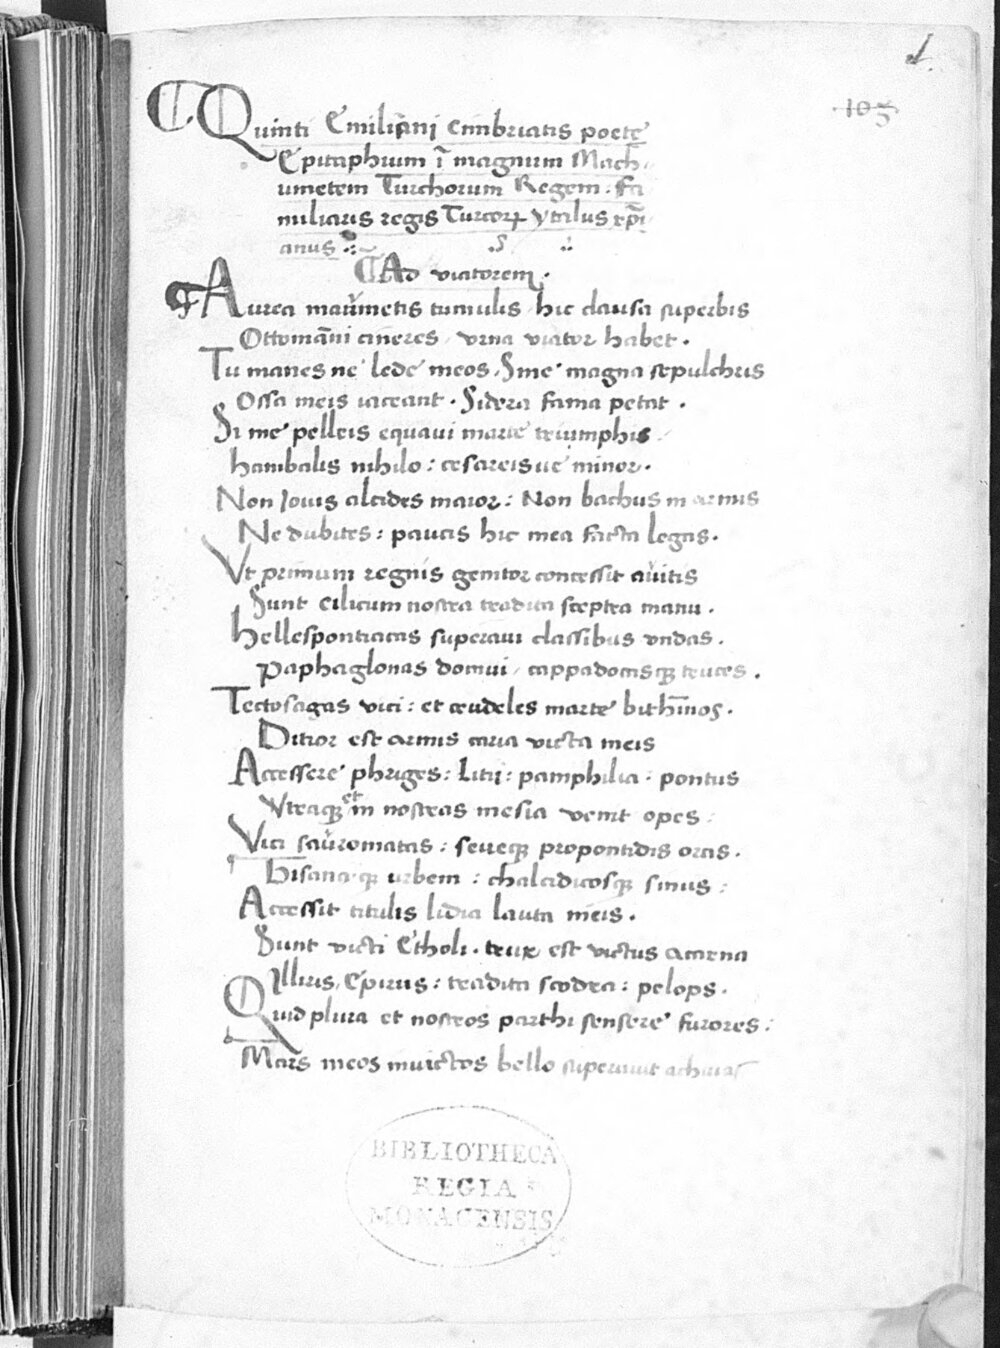 1.
105
Quinti Emiliani Cimbriatis poete
Epitaphium ī magnum Mach
umetem Turchorum Regem. Fa
miliaris regis Turcoꝝ Vtilus xp̄i
anus
Ad viatorem.
Aurea maumetis tumulis hic clausa superbis
Ottomāni cineres, vrna viator habet.
Tu manes ne lede meos, Sine magna sepulchris
Ossa meis iaceant. Sidera fama petat.
Si me pelleis equaui marte triumphis
hanibalis nihilo: cesareisue minor.
Non Iouis alcides maior: Non bachus in armis
Ne dubites: paucis hic mea facta legas.
Vt primum regnis genitor concessit auitis
Sunt cilicum nostra tradita sceptra manu.
hellespontiacas superaui classibus vndas.
Paphaglonas domui, cappadocasqꝫ truces.
Tectosagas vici: et crudeles marte bith̄inos.
Ditior est armis caria victa meis
Accessere phriges: Litij: pamphilia: pontus
Vtraqꝫ et in nostras mesia venit opes:
Vici sauromatas: seueqꝫ propontidis oras.
Bisanaqꝫ urbem: chalcidicosqꝫ sinus:
Accessit titulis lidia lauta meis.
Sunt victi Etholi. trux est victus acarna
Illiris, Epirus: tradita scodra: pelops.
Quid plura et nostros parthi sensere furores:
Mars meos inuictos bello superauit achiuas
BIBLIOTHECA
REGIA
MONACENSIS